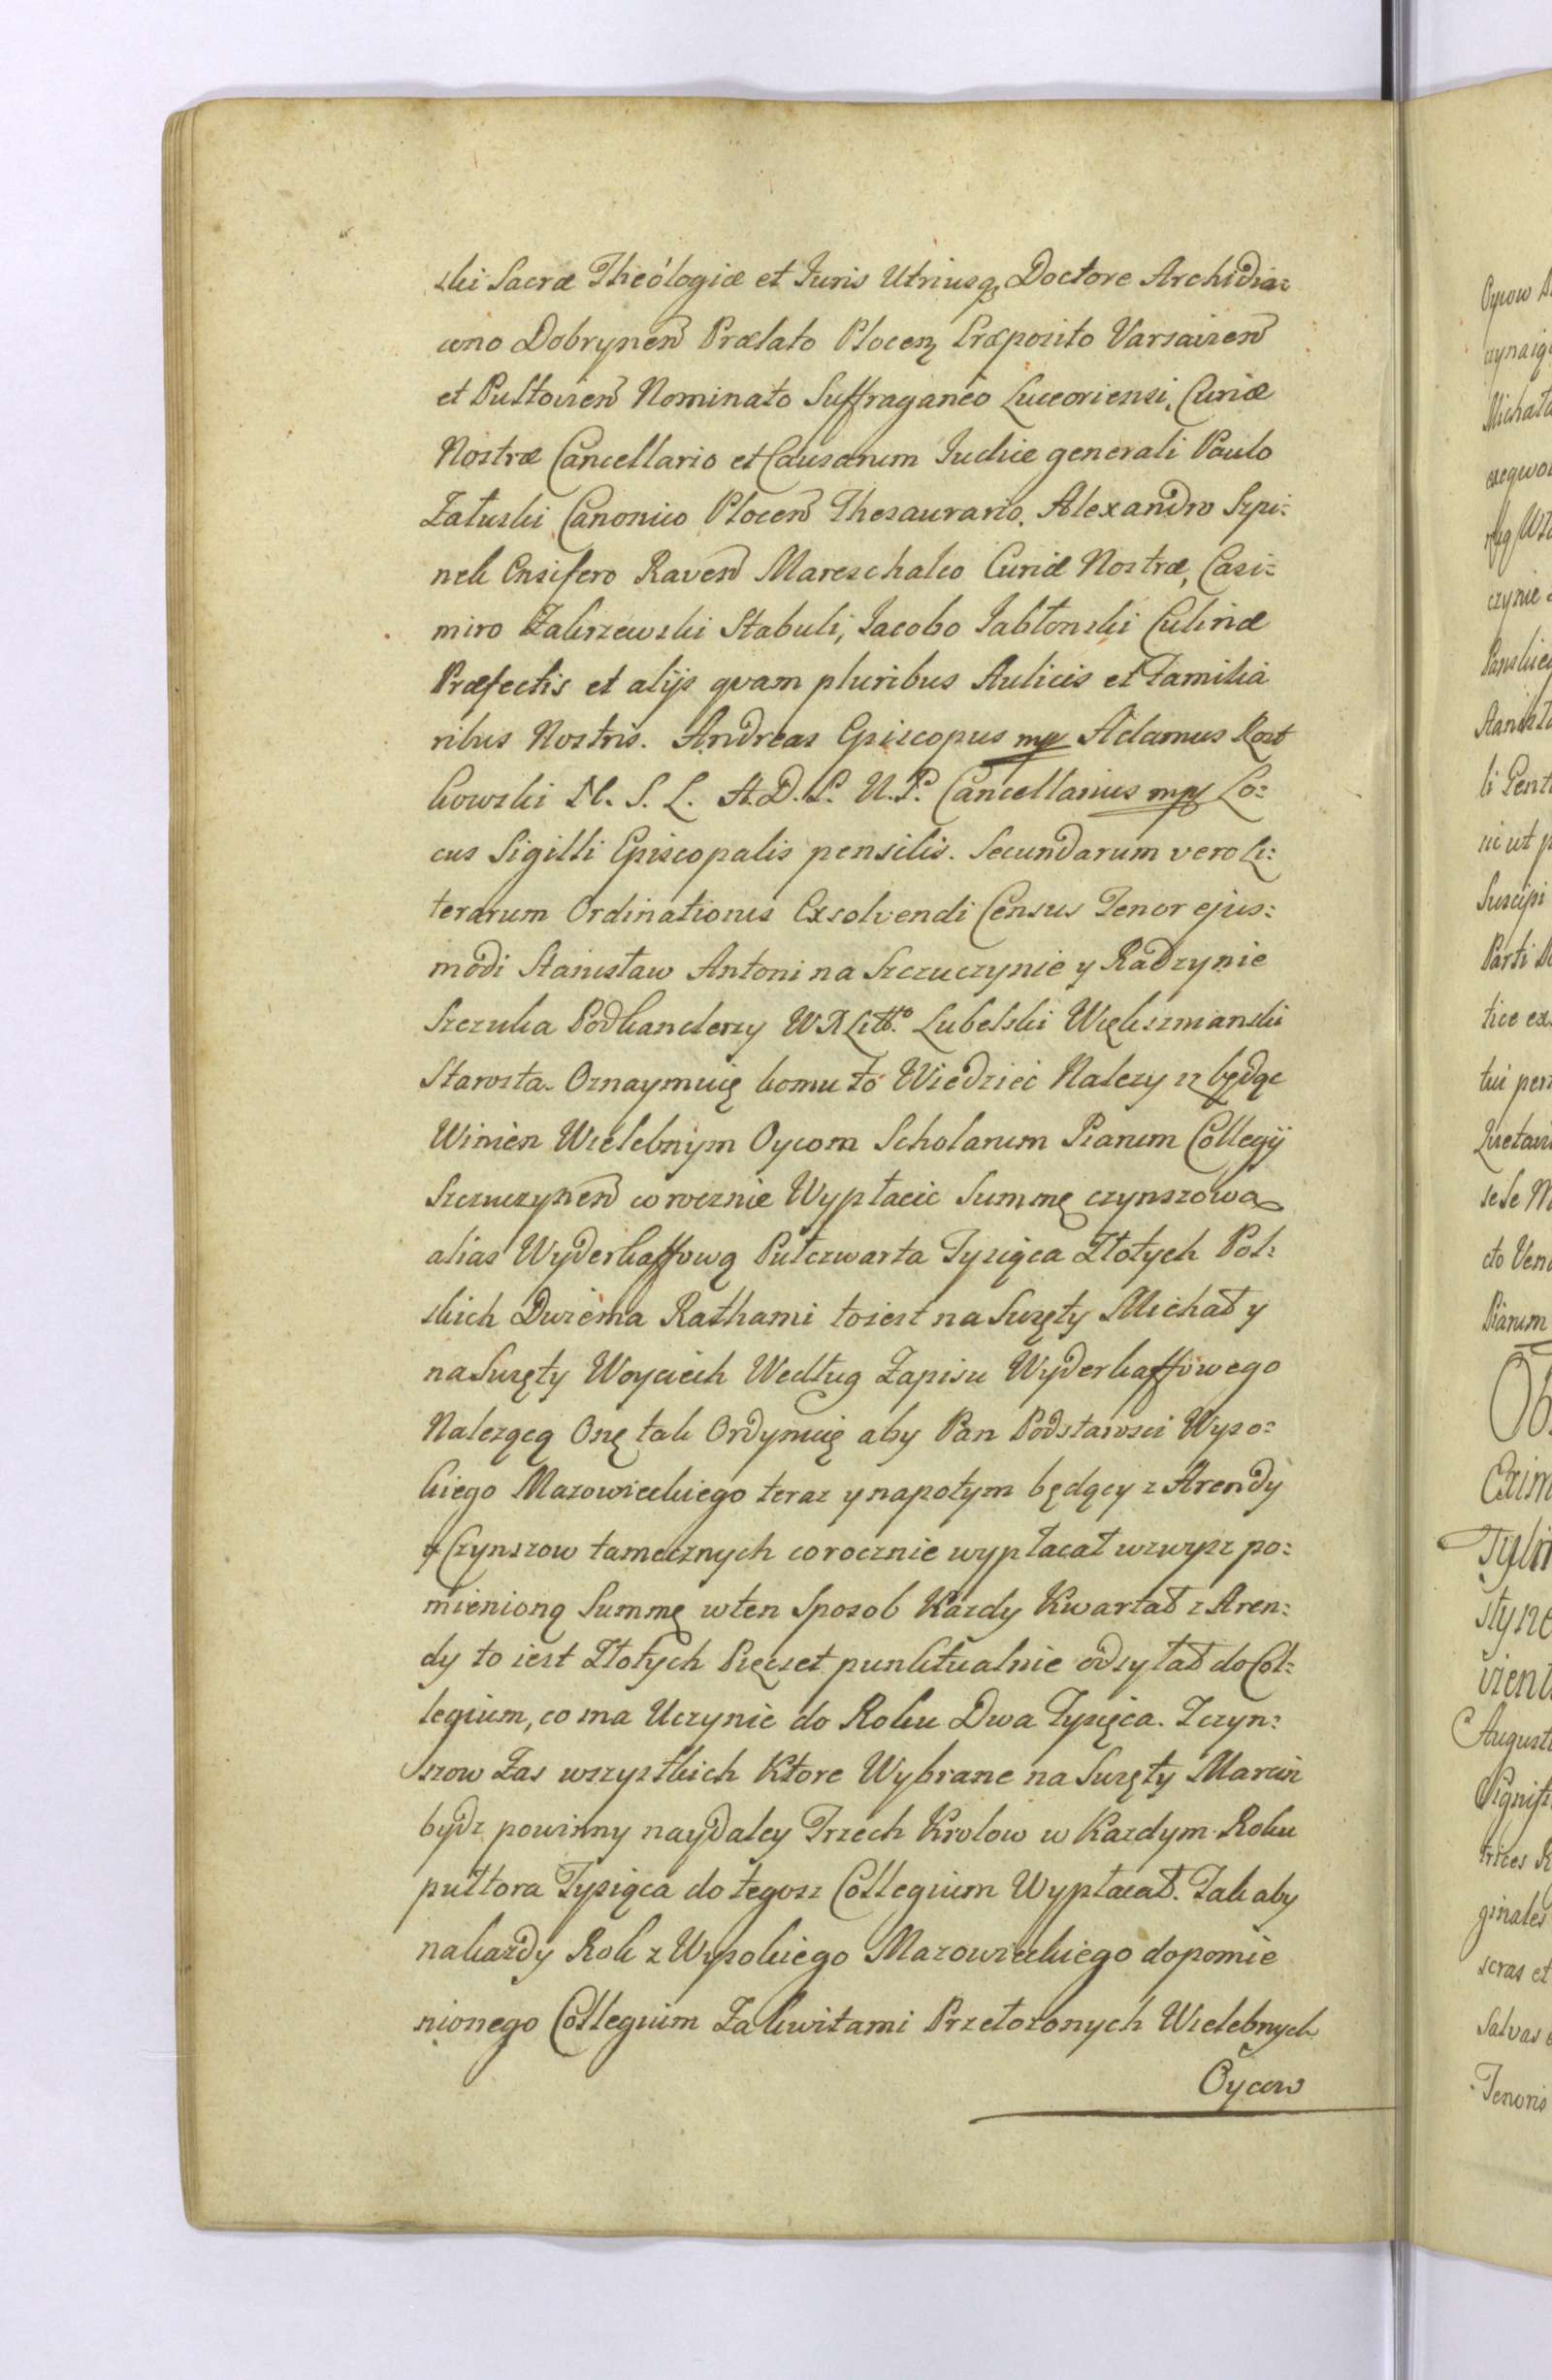 ski Sacræ Theologiæ et Juris Utriusq; Doctore Archidia=
cono Dobrynen Prælato Plocen Præposito Varsavien
et Pultovien Nominato Suffraganeo Luceoriensi, Curiæ
Nostræ Cancellario et Causarum Judice generali Paulo
Załuski Canonico Plocen Thesaurario, Alexandro Szpi=
nek Ensifero Raven Mareschalco Curiæ Nostræ, Casi=
miro Zakrzewski Stabuli, Jacobo Jabłonski Culinæ
Præfectis et alijs qvam pluribus Aulicis et Familia
ribus Nostris. Andreas Episcopus mp Adamus Rost
kowski N. S. L. A. D. P. U. P. Cancellarius mp Lo=
cus Sigilli Episcopalis pensilis. Secundarum vero Li=
terarum Ordinationis Exsolvendi Census Tenor ejus=
modi Stanisław Antoni na Szczuczynie y Radzynie
Szczuka Podkanclerzy W X Litt.º Lubelski Większmanski
Starosta. Oznaymuię komu to Wiedziec Nalezy iz będąc
Winien Wielebnym Oycom Scholarum Piarum Collegij
Szczuczynen corocznie Wypłacic Summę czynszową
alias Wyderkaffową Pułczwarta Tysiąca Złotych Pol=
skich Dwiema Rathami toiest na Swięty Michał y
na Swięty Woyciech Według Zapisu Wyderkaffowego
Nalezącą Onę tak Ordynuię aby Pan Podstarosci Wyso=
kiego Mazowieckiego teraz y napotym będący z Arendy
y Czynszow tamecznych corocznie wypłacał wzwysz po=
mienioną Summę wten Sposob Kazdy Kwartał z Aren=
dy to iest Złotych Pięcset punktualnie odsyłał do Col=
legium, co ma Uczynic do Roku Dwa Tysięca. Z czyn=
szow Zas wszystkich Ktore Wybrane na Swięty Marcin
bydz powinny naydaley Trzech Krolow w Kazdym Roku
pułtora Tysiąca do tegosz Collegium Wypłacał. Tak aby
nakazdy Rok z Wysokiego Mazowieckiego dopomie
nionego Collegium Za kwitami Przełozonych Wielebnych
Oycow